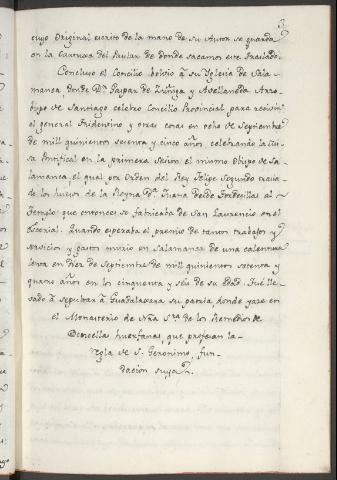 3
cuyo Original escrito de la mano de su Autor se guarda
en la Cartuxa del Paular de donde sacamos este traslado.
Concluso el Concilio bolvio à su Yglesia de Sala-
manca donde Dn. Gaspar de Zuñiga y Avellaneda Arzo-
bispo de Santiago celebro Concilio Provincial para recivir
el general tridentino y otras cosas en ocho de septiembre
de mil quinientos sesenta y cinco años, celebrando la Mi-
sa Pontifical en la primera sesion el mismo Obispo de Sa-
lamanca, el qual por orden del Rey Felipe Segundo traia-
de los huesos de la Reyna Da. Juana desde Tordesillas al
Templo que entonces se fabricaba de San Laurencio en el
Escorial. Quando esperaba el premio de tantos trabajos y
servicios y gastos murio en Salamanca de una calentura
lenta en Diez de Septiembre de mil quinientos setenta y
quatro años en los cinquenta y seis de su edad. Fue lle-
vado à sepultar à Guadalaxara su patria, donde yace en
el Monasterio de Nra Sra de los Remedios de
Doncellas huerfanas, que profesan la
regla de S. Geronimo, fun-
dacion suya.